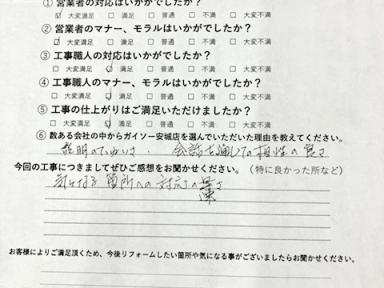 ① 営業者の対応はいかがでしたか?
☑ 大変満足 □ 満足 □ 普通 □ 不満 □ 大変不満
② 営業者のマナー、モラルはいかがでしたか?
大変満足 □ 満足 □ 普通 □ 不満 □ 大変不満
③ 工事職人の対応はいかがでしたか?
□ 大変満足 満足 □ 普通 □ 不満 □ 大変不満
④ 工事職人のマナー、モラルはいかがでしたか?
□ 大変満足 満足 □ 普通 □ 不満 □ 大変不満
⑤ 工事の仕上がりはご満足いただけましたか?
□ 大変満足 満足 □ 普通 □ 不満 □ 大変不満
⑥ 数ある会社の中からガイソー安城店を選んでいただいた理由を教えてください。
説明のていねいさ・会話を通しての相性の良さ
今回の工事につきましてぜひご感想をお聞かせください。(特に良かった所など)
気になる箇所への対応の早さ
お客様によりご満足頂くため、今後リフォームしたい箇所や気になる事がございましたらお聞かせください。